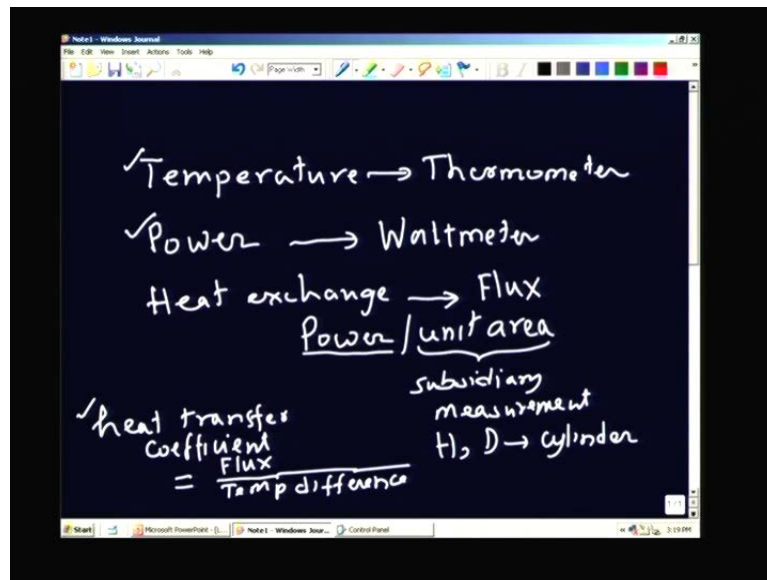 Note1 - Windows Journal
File Edit View Insert Actions Tools Help
Page width
B I
✓Temperature → Thermometer
✓Power → Wattmeter
Heat exchange → Flux
Power / unit area
subsidiary
measurement
H, D → cylinder
✓heat transfer
coefficient
= Flux
Temp difference
1/1
Start Microsoft PowerPoint - [L... Note1 - Windows Jour... Control Panel « 3:19 PM